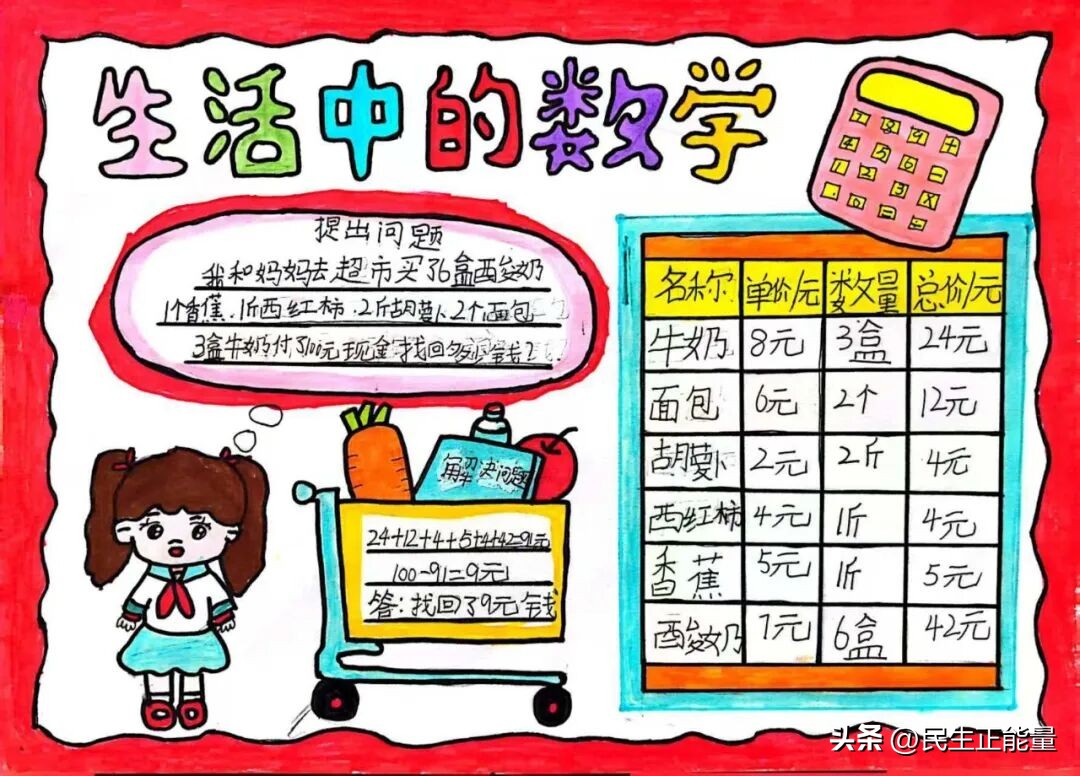 生活中的数学
7 8 9 +
4 5 6 -
1 2 3 X
. 0 = -
提出问题
我和妈妈去超市买了6盒酸奶
1个香蕉.1斤西红柿.2斤胡萝卜.2个面包
3盒牛奶付了100元现金找回多少钱?
解决问题
24+12+4+5+4+42=91元
100-91=9元
答:找回了9元钱
名称 单价/元 数量 总价/元
牛奶 8元 3盒 24元
面包 6元 2个 12元
胡萝卜 2元 2斤 4元
西红柿 4元 1斤 4元
香蕉 5元 1斤 5元
酸奶 7元 6盒 42元
头条 @民生正能量